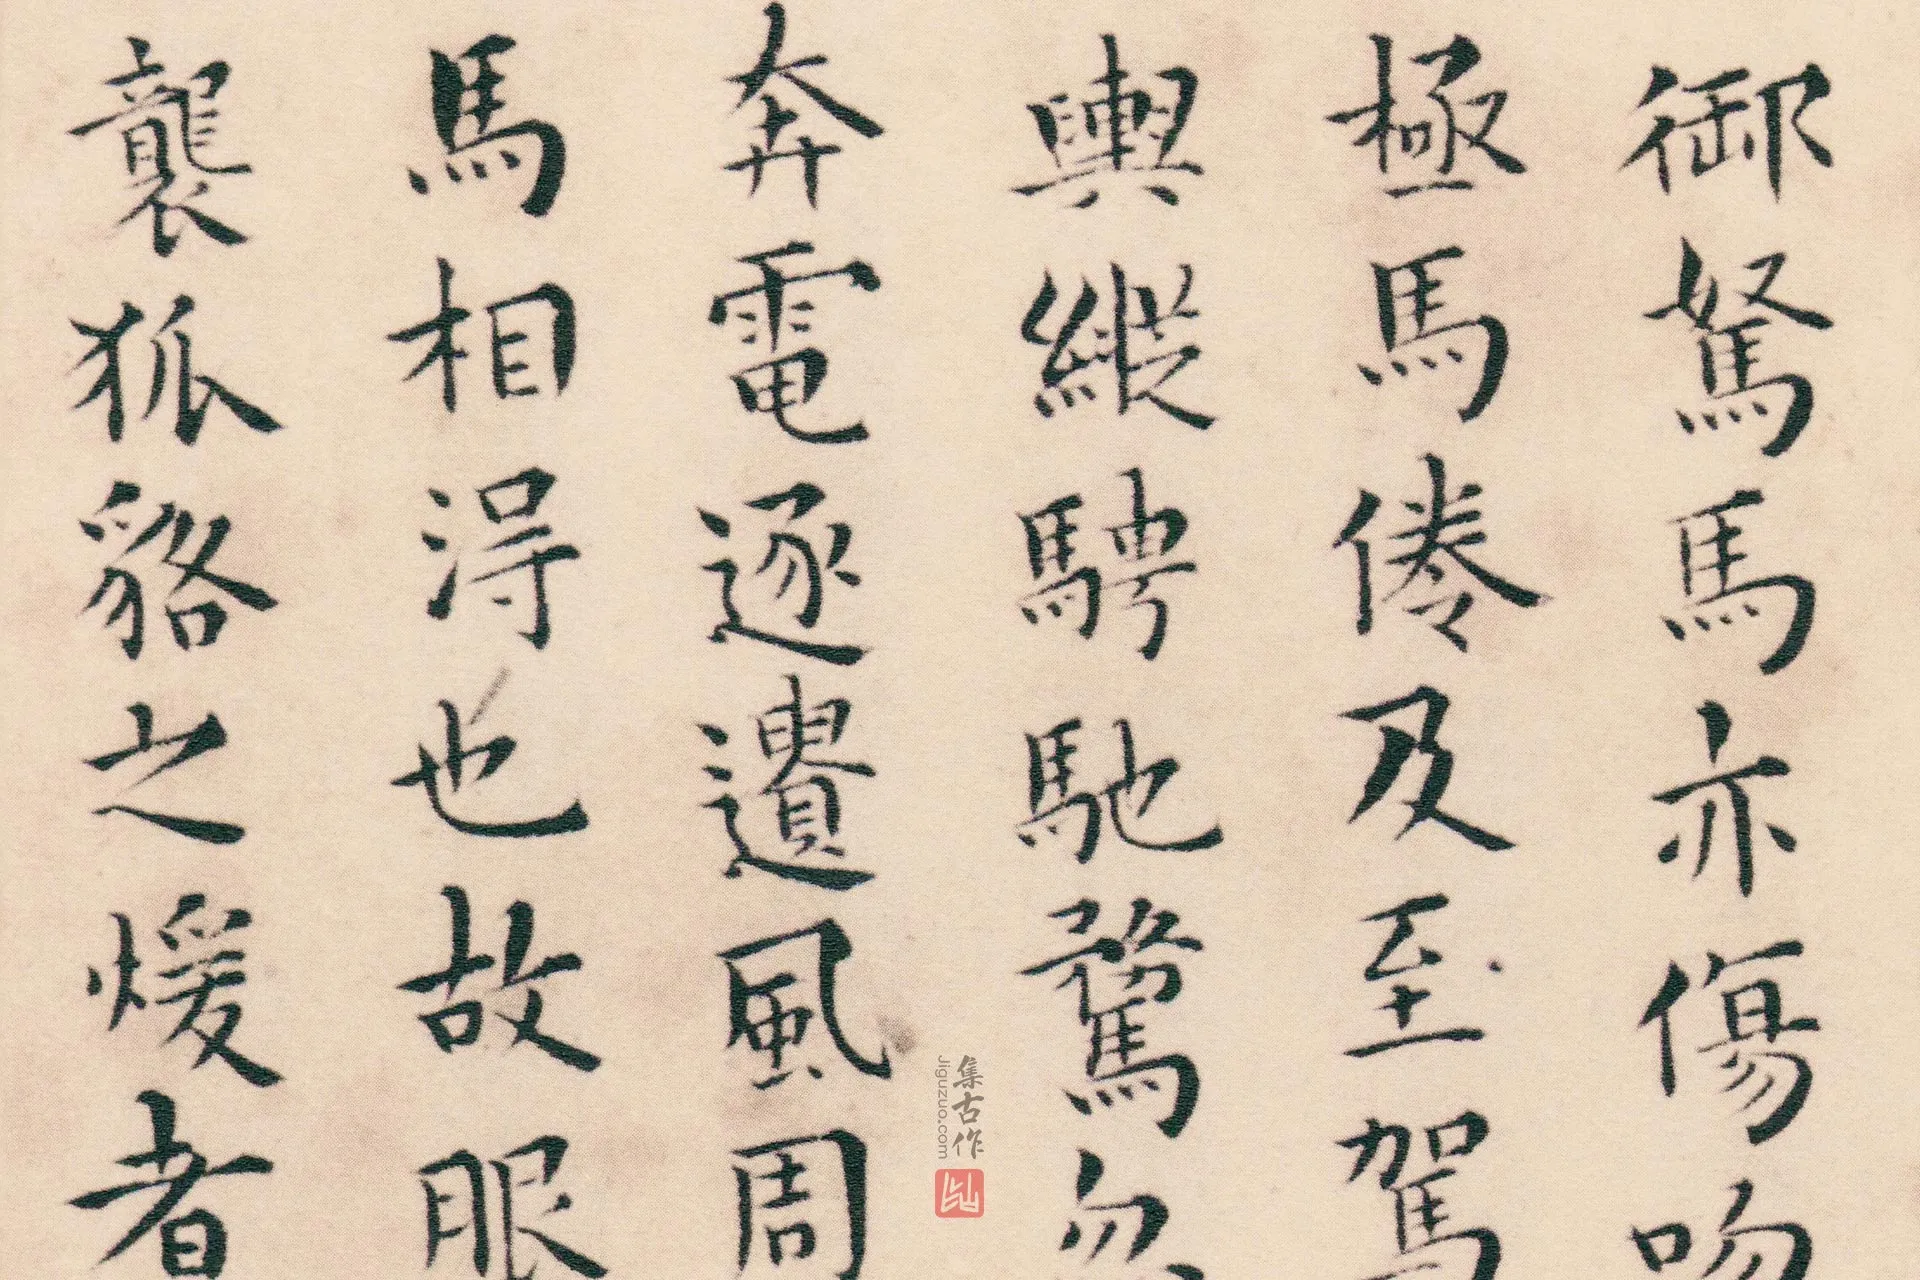 御駑馬亦傷吻
極馬倦及至駕
輿縱騁馳騖忽
奔電逐遺風周
馬相得也故服
襲狐貉之煖者
集古作
Jiguzuo.com